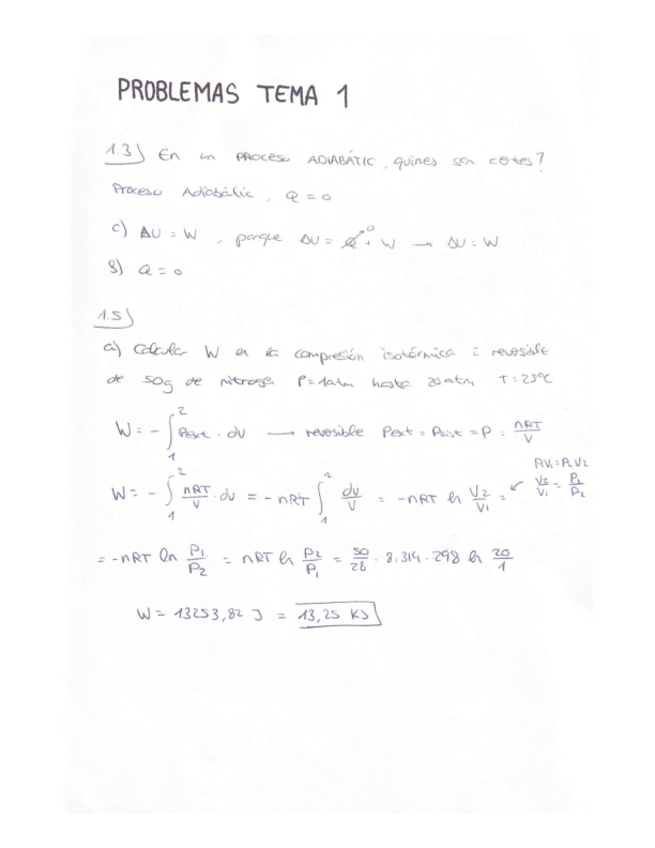 PROBLEMAS TEMA 1
1.3) En un PROCESO ADIABÀTIC, quines son certes?
Proceso Adiabático, Q = 0
c) ΔU = W, porque ΔU = Q⁰ + W → ΔU = W
g) Q = 0
1.5)
a) Calcula W en la compresión isotérmica i reversible
de 50g de nitrogen P = 1atm hasta 20 atm T = 25ºC
W = - ∫₁² Pext · dV → reversible Pext = Pint = P = nRT/V
W = - ∫₁² nRT/V · dV = - nRT ∫₁² dV/V = - nRT ln V2/V1 = ↙ P1V1 = P2V2 V2/V1 = P1/P2
= - nRT ln P1/P2 = nRT ln P2/P1 = 50/28 · 8.314 · 298 ln 20/1
W = 13253,82 J = 13,25 KJ